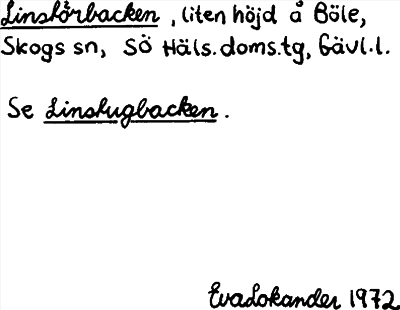 Linstörbacken, liten höjd å Böle,
Skogs sn, SÖ Häls.doms.tg, Gävl.l.
Se Linstugbacken.
Eva Lokander 1972